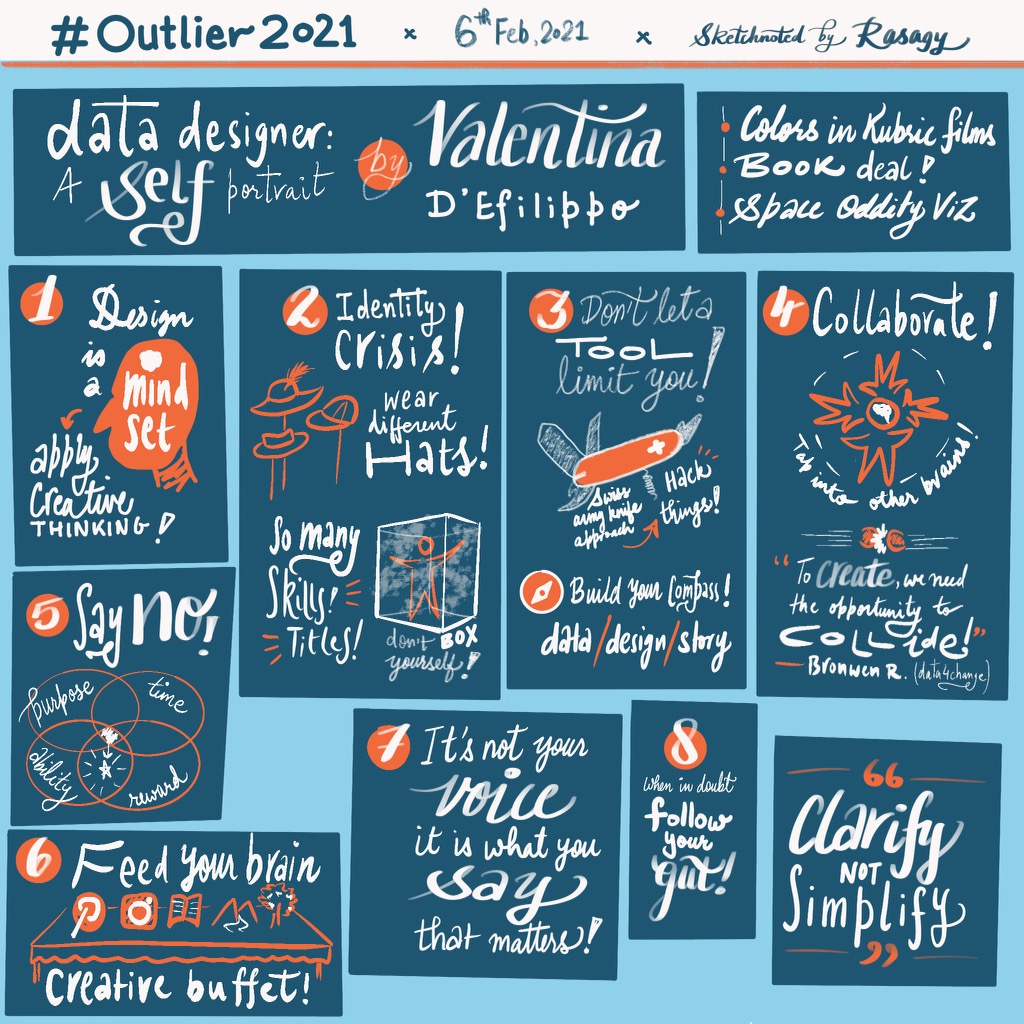 #Outlier2021 × 6th Feb, 2021 × Sketchnoted by Rasagy
data designer:
A Self portrait
by
Valentina
D'Efilippo
Colors in Kubric films
Book deal!
Space Oddity Viz
1 Design
is
a
mind
set
apply
Creative
THINKING!
2 Identity
Crisis!
wear
different
Hats!
So many
Skills!
Titles!
don't BOX
yourself!
3 Don't let a
TOOL
limit you!
Swiss
army knife
approach
Hack
things!
Build your Compass!
data/design/story
4 Collaborate!
Tap into other brains!
"To Create, we need
the opportunity to
COLLide!"
— Bronwen R. (data4change)
5 Say no!
purpose
time
ability
reward
6 Feed your brain
Creative buffet!
7 It's not your
voice
it is what you
say
that matters!
8
when in doubt
follow
your
gut!
“
Clarify
NOT
Simplify
”